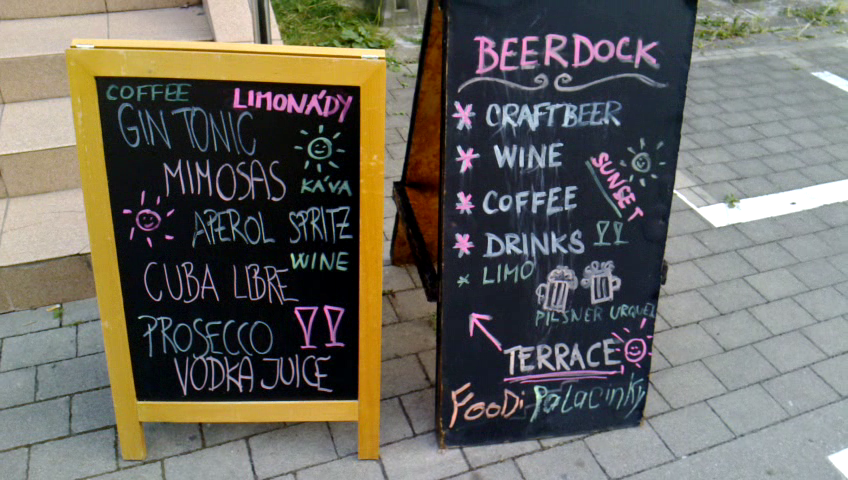 COFFEE
LIMONÁDY
GIN TONIC
MIMOSAS
KÁVA
APEROL SPRITZ
WINE
CUBA LIBRE
PROSECCO
VODKA JUICE
BEERDOCK
CRAFTBEER
WINE
SUNSET
COFFEE
DRINKS
LIMO
PILSNER URQUEL
TERRACE
FOODi PaLacinky